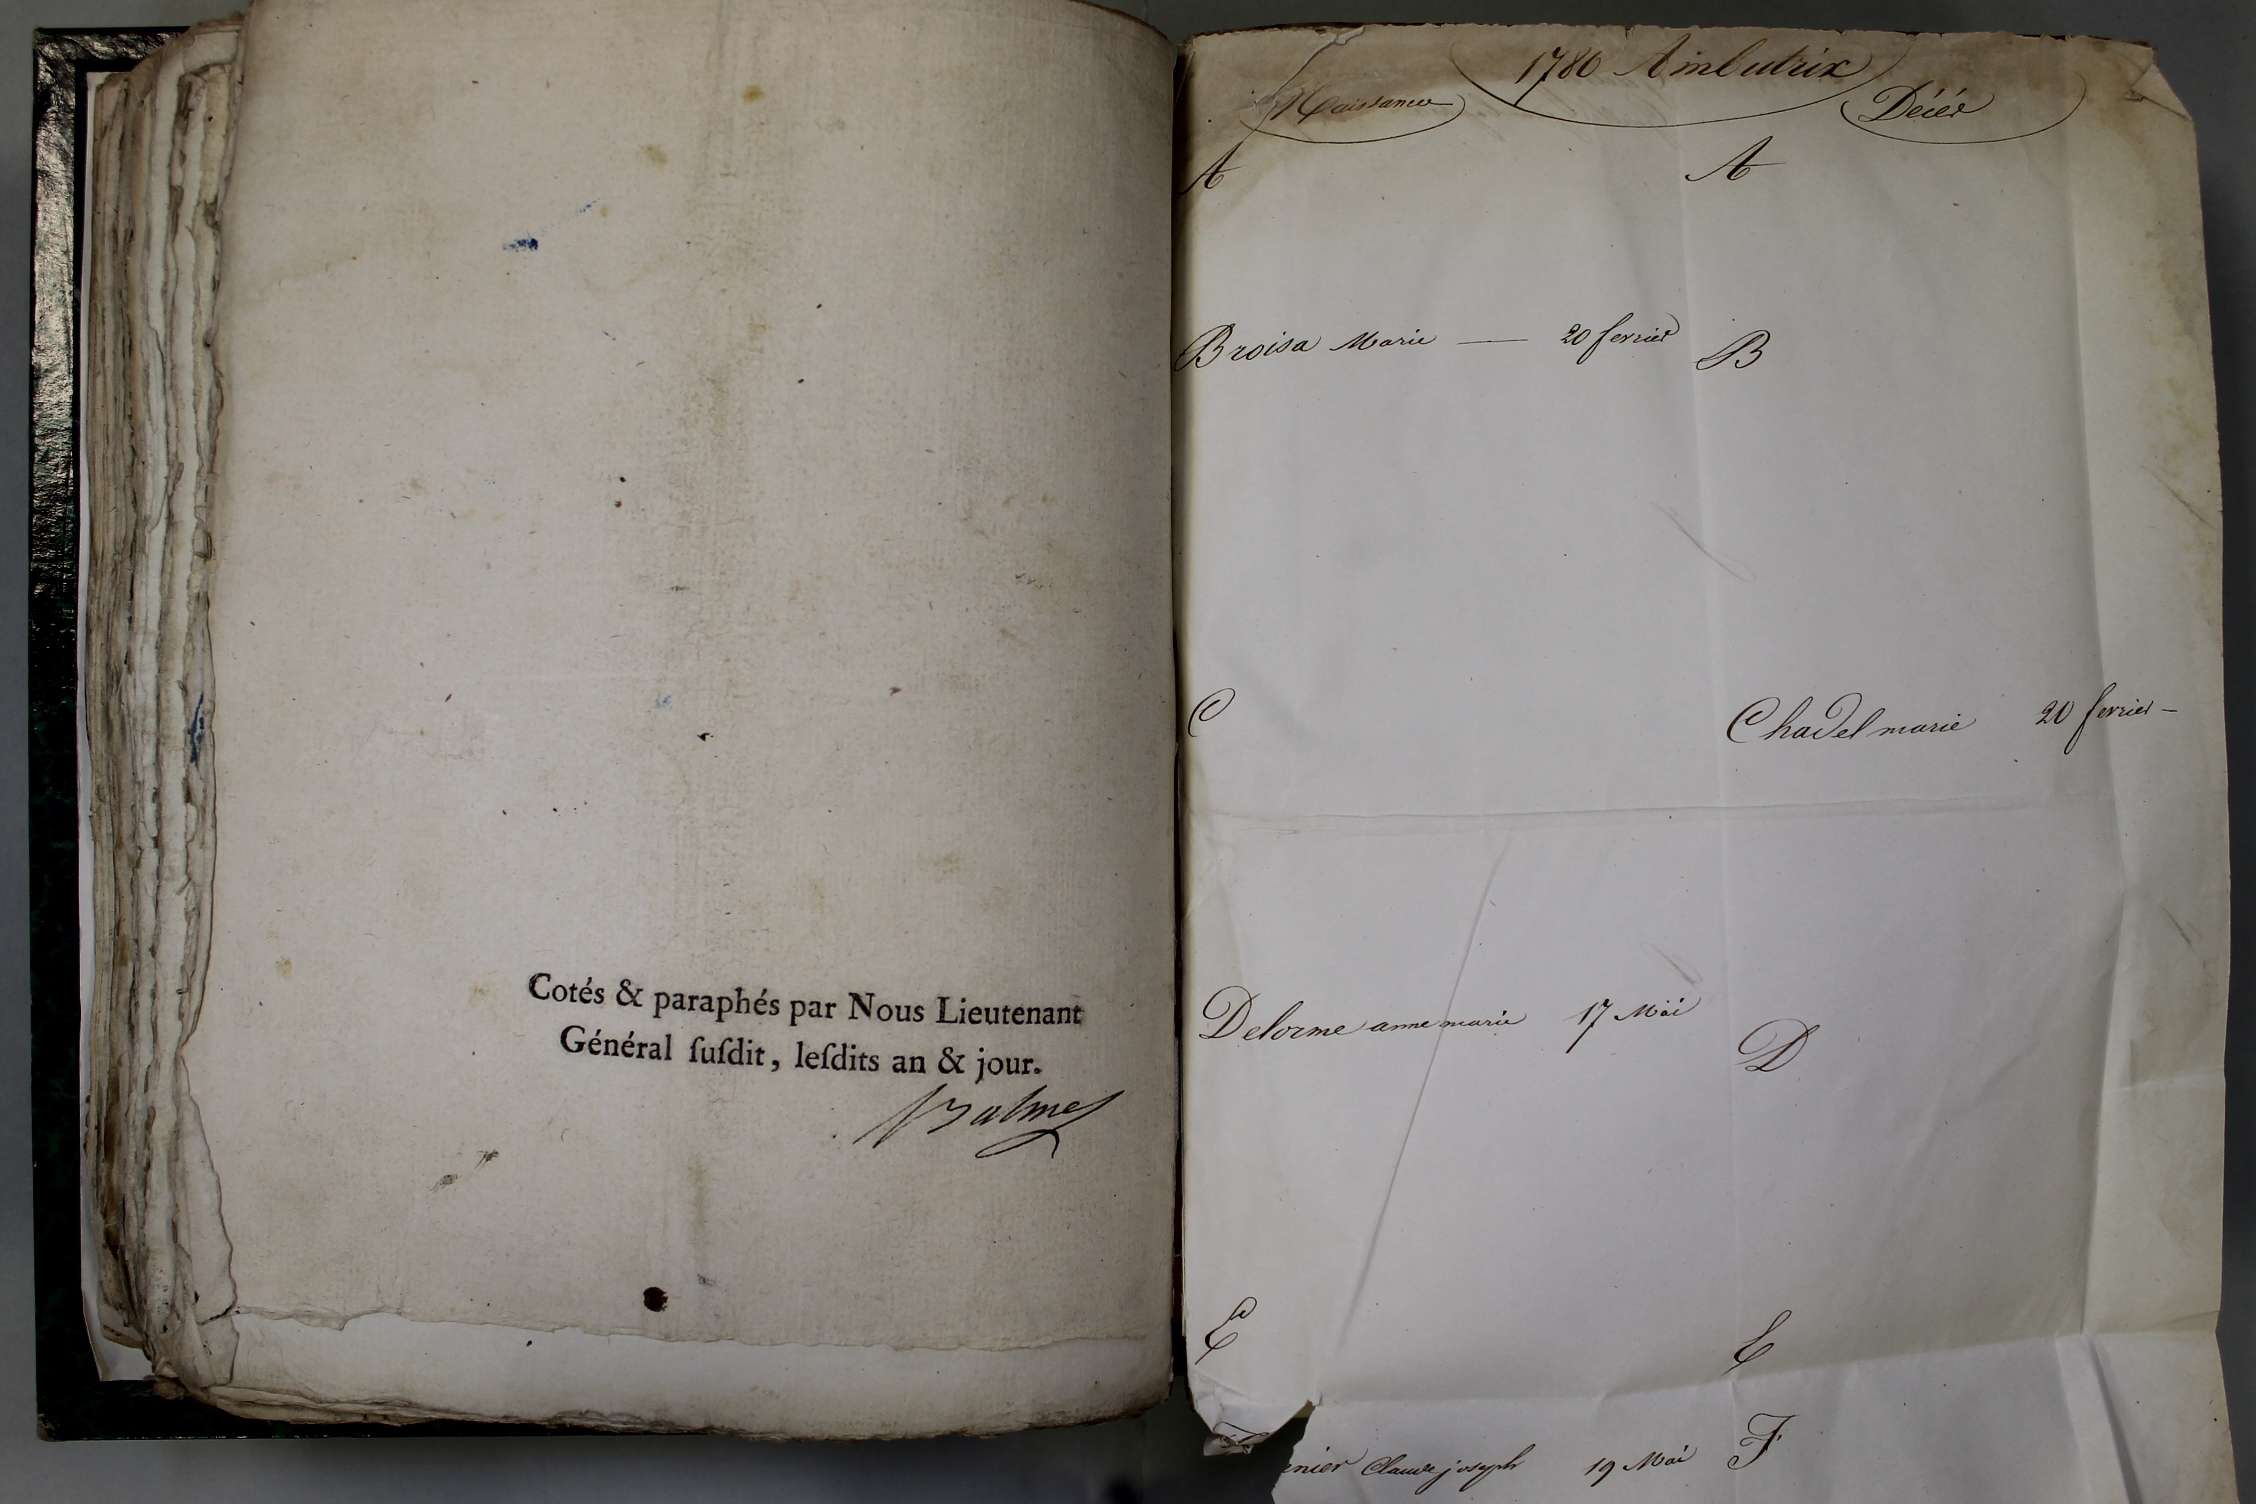 Cotés & paraphés par Nous Lieutenant
Général ſuſdit, leſdits an & jour.
Balme
1780 Ambutrix
Naissance
Décés
A
A
Broisa Marie — 20 fevrier
B
C
Chadel marie 20 fevrier —
Delorme anne marie 17 Mai
D
E
E
nier Claude joseph 19 Mai
F